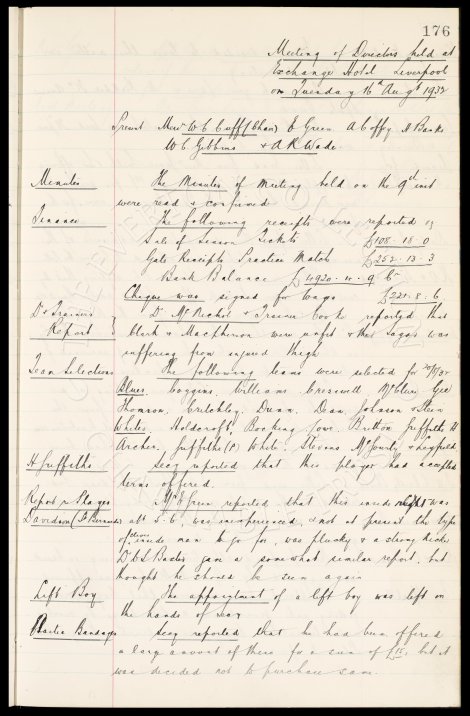 176
Meeting of Directors held at
Exchange Hotel Liverpool
on Tuesday 16th Augt 1932
Present Messrs W. C. Cuff (Chair) E Green A Coffey H Banks
W. C. Gibbins & A R Wade.
Minutes The Minutes of meeting held on the 9th inst
were read & confirmed
Finance The following receipts were reported
Sale of Season Tickets £108.18.0
Gate Receipts Practice Match £252.13.3
Bank Balance £4920.11.9 Cr
Cheque was signed for Wages £221.8.6
Drs & Trainers Report Dr McNichol & Trainer Cook reported that
Clark & Macpherson were unfit & that Sagar was
suffering from injured thigh
Team Selections The following teams were selected for 20/8/32
Blues. Coggins, Williams Cresswell McClure Gee
Thomson. Critchley Dunn. Dean, Johnson & Stein
Whites. Holdcroft, Bocking Lowe. Britton Griffiths H
Archer. Griffiths (P) White. Stevens McGourty &
H Griffiths Secy reported that this player had accepted
terms offered.
Report re Players Mr Green reported that this inside right was
Davidson abt 5.6, was inexperienced, & not at present the type
of inside man to go for, was plucky & a strong kicker
Dr C S Baxter gave a somewhat similar report, but
thought he should be seen again
Lift Boy The appointment of a lift boy was left in
the hands of Secy
Bandages Secy reported that he had been offered
a large amount of these for a sum of £15, but it
was decided not to purchase same.